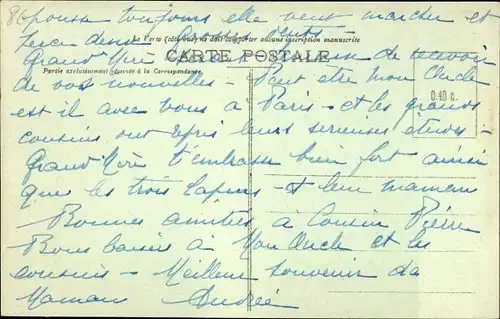 pousse toujours elle veut marcher et
perce deux grosses dents
Le Verso (côté vue) ne doit comporter aucune inscription manuscrite
CARTE POSTALE
Grand'Mère de recevoir
Partie exclusivement réservée à la Correspondance.
de vos nouvelles - Peut être mon Oncle
0.40 G.
est il avec vous à Paris - et les grands
cousins ont repris leurs sérieuses études -
Grand'Mère t'embrasse bien fort ainsi
que les trois lapins - et leur maman
Bonnes amitiés à Cousin Pierre
Bons baisers à Mon Oncle et les
cousins - Meilleur souvenir de
Maman Andrée